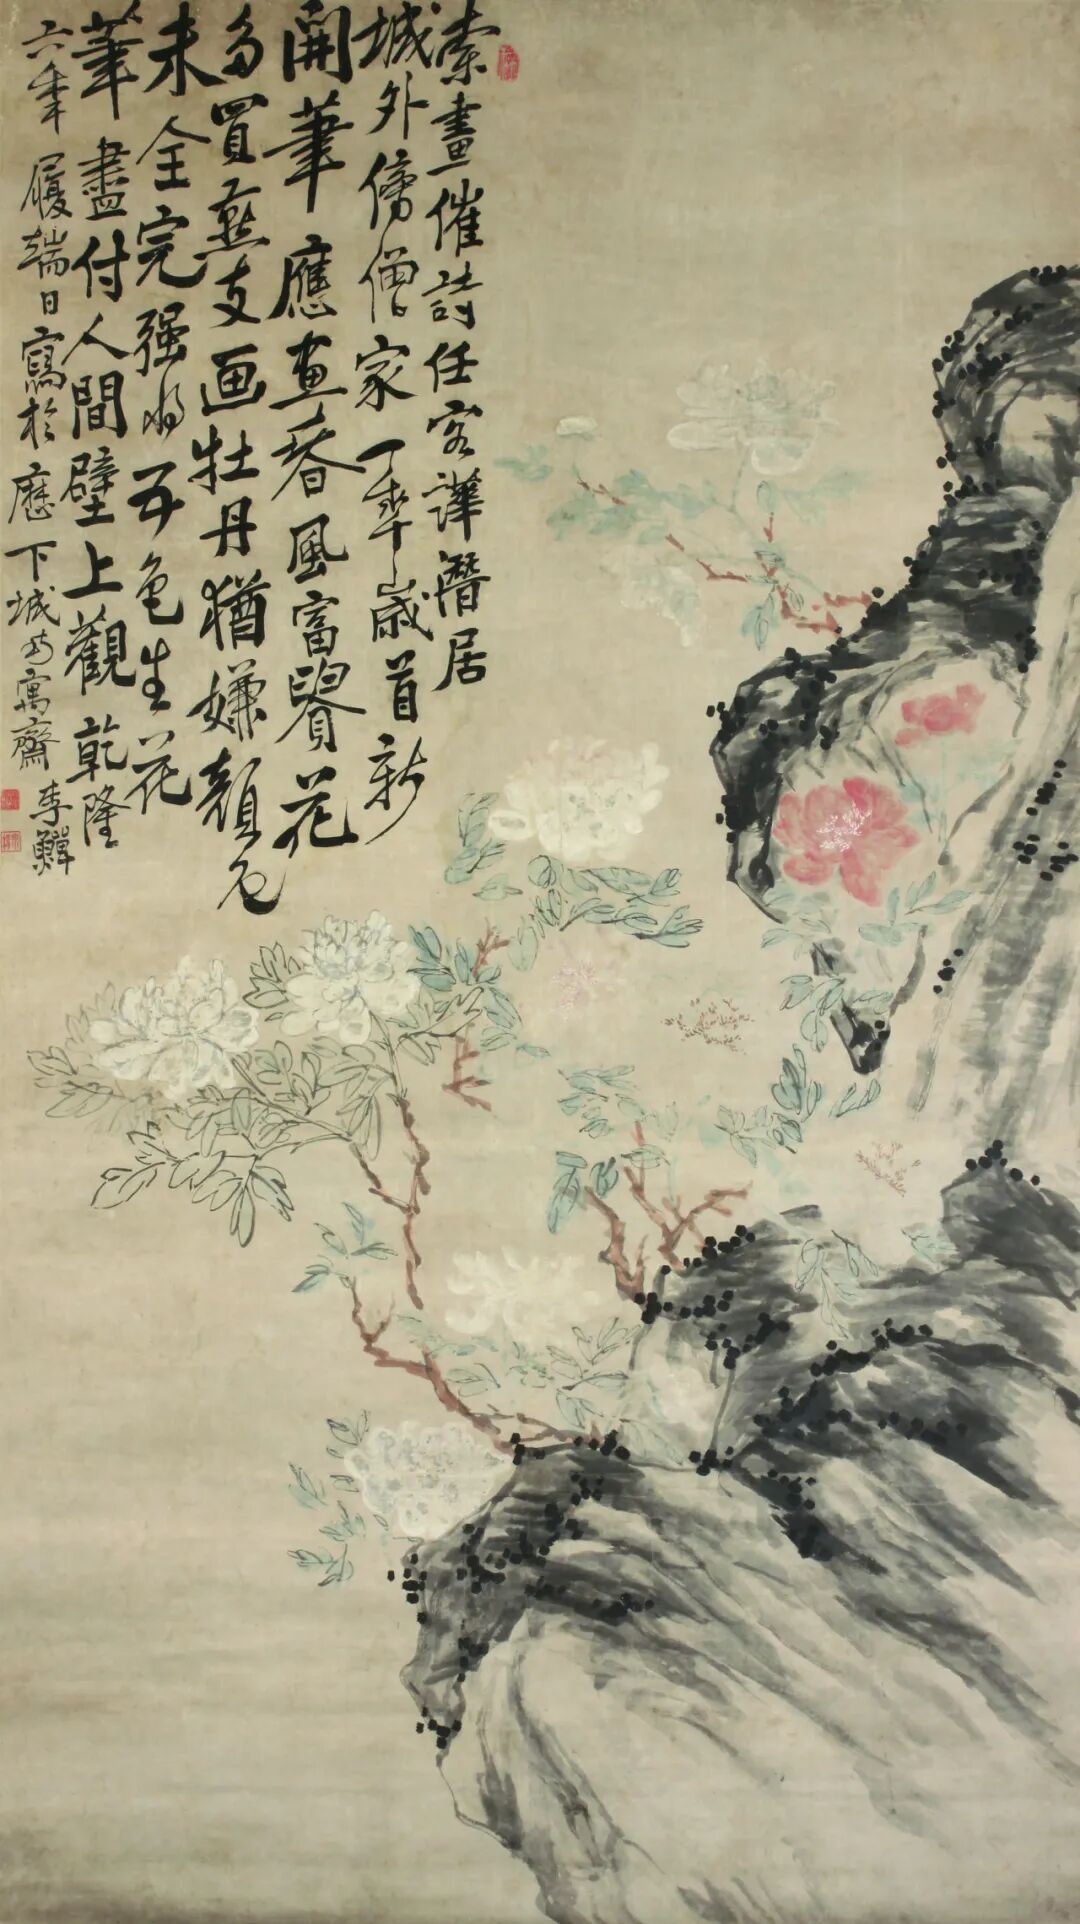 索畫催詩任客譁潛居
城外傍僧家一年歲首新
開筆應画春風富貴花
多買燕支画牡丹猶嫌顏色
未全完强將五色生花
筆盡付人間壁上觀乾隆
六年履端日寫於歷下城南寓齋李鱓